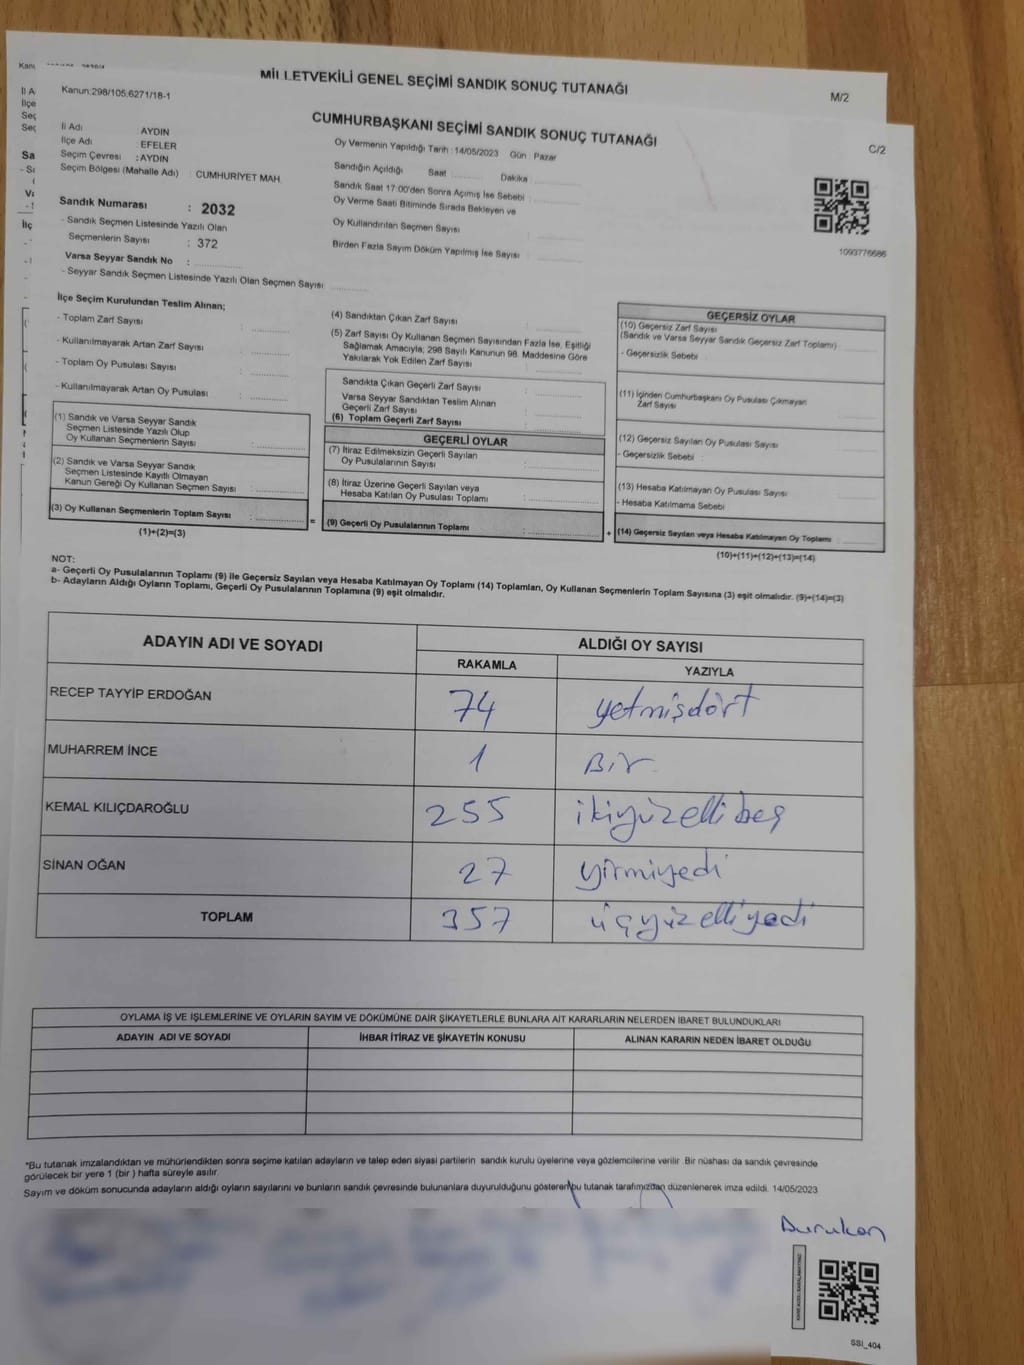 MİLLETVEKİLİ GENEL SEÇİMİ SANDIK SONUÇ TUTANAĞI
M/2
Kanun:298/105,6271/18-1
CUMHURBAŞKANI SEÇİMİ SANDIK SONUÇ TUTANAĞI
C/2
İl Adı AYDIN
İlçe Adı : EFELER
Seçim Çevresi : AYDIN
Seçim Bölgesi (Mahalle Adı) : CUMHURİYET MAH.
Sandık Numarası : 2032
- Sandık Seçmen Listesinde Yazılı Olan
Seçmenlerin Sayısı : 372
Varsa Seyyar Sandık No :
- Seyyar Sandık Seçmen Listesinde Yazılı Olan Seçmen Sayısı
Oy Vermenin Yapıldığı Tarih : 14/05/2023 Gün : Pazar
Sandığın Açıldığı Saat Dakika
Sandık Saat 17:00'den Sonra Açımış İse Sebebi :
Oy Verme Saati Bitiminde Sırada Bekleyen ve
Oy Kullandırılan Seçmen Sayısı :
Birden Fazla Sayım Döküm Yapılmış İse Sayısı :
1093776686
İlçe Seçim Kurulundan Teslim Alınan;
- Toplam Zarf Sayısı :
- Kullanılmayarak Artan Zarf Sayısı :
- Toplam Oy Pusulası Sayısı :
- Kullanılmayarak Artan Oy Pusulası :
(1) Sandık ve Varsa Seyyar Sandık
Seçmen Listesinde Yazılı Olup
Oy Kullanan Seçmenlerin Sayısı :
(2) Sandık ve Varsa Seyyar Sandık
Seçmen Listesinde Kayıtlı Olmayan
Kanun Gereği Oy Kullanan Seçmen Sayısı :
(3) Oy Kullanan Seçmenlerin Toplam Sayısı :
(1)+(2)=(3)
(4) Sandıktan Çıkan Zarf Sayısı :
(5) Zarf Sayısı Oy Kullanan Seçmen Sayısından Fazla İse, Eşitliği
Sağlamak Amacıyla; 298 Sayılı Kanunun 98. Maddesine Göre
Yakılarak Yok Edilen Zarf Sayısı :
Sandıkta Çıkan Geçerli Zarf Sayısı :
Varsa Seyyar Sandıktan Teslim Alınan
Geçerli Zarf Sayısı :
(6) Toplam Geçerli Zarf Sayısı :
GEÇERLİ OYLAR
(7) İtiraz Edilmeksizin Geçerli Sayılan
Oy Pusulalarının Sayısı :
(8) İtiraz Üzerine Geçerli Sayılan veya
Hesaba Katılan Oy Pusulası Toplamı :
= (9) Geçerli Oy Pusulalarının Toplamı :
GEÇERSİZ OYLAR
(10) Geçersiz Zarf Sayısı
(Sandık ve Varsa Seyyar Sandık Geçersiz Zarf Toplamı)
- Geçersizlik Sebebi :
(11) İçinden Cumhurbaşkanı Oy Pusulası Çıkmayan
Zarf Sayısı :
(12) Geçersiz Sayılan Oy Pusulası Sayısı
- Geçersizlik Sebebi :
(13) Hesaba Katılmayan Oy Pusulası Sayısı
- Hesaba Katılmama Sebebi
+ (14) Geçersiz Sayılan veya Hesaba Katılmayan Oy Toplamı :
(10)+(11)+(12)+(13)=(14)
NOT:
a- Geçerli Oy Pusulalarının Toplamı (9) ile Geçersiz Sayılan veya Hesaba Katılmayan Oy Toplamı (14) Toplamları, Oy Kullanan Seçmenlerin Toplam Sayısına (3) eşit olmalıdır. (9)+(14)=(3)
b- Adayların Aldığı Oyların Toplamı, Geçerli Oy Pusulalarının Toplamına (9) eşit olmalıdır.
ADAYIN ADI VE SOYADI ALDIĞI OY SAYISI
RAKAMLA YAZIYLA
RECEP TAYYİP ERDOĞAN 74 yetmişdört
MUHARREM İNCE 1 Bir
KEMAL KILIÇDAROĞLU 255 ikiyüzellibeş
SİNAN OĞAN 27 yirmiyedi
TOPLAM 357 üçyüzelliyedi
OYLAMA İŞ VE İŞLEMLERİNE VE OYLARIN SAYIM VE DÖKÜMÜNE DAİR ŞİKAYETLERLE BUNLARA AİT KARARLARIN NELERDEN İBARET BULUNDUKLARI
ADAYIN ADI VE SOYADI İHBAR İTİRAZ VE ŞİKAYETİN KONUSU ALINAN KARARIN NEDEN İBARET OLDUĞU
*Bu tutanak imzalandıktan ve mühürlendikten sonra seçime katılan adayların ve talep eden siyasi partilerin sandık kurulu üyelerine veya gözlemcilerine verilir. Bir nüshası da sandık çevresinde
görülecek bir yere 1 (bir ) hafta süreyle asılır.
Sayım ve döküm sonucunda adayların aldığı oyların sayılarını ve bunların sandık çevresinde bulunanlara duyurulduğunu gösteren bu tutanak tarafımızdan düzenlenerek imza edildi. 14/05/2023
Durukan
SSI_404